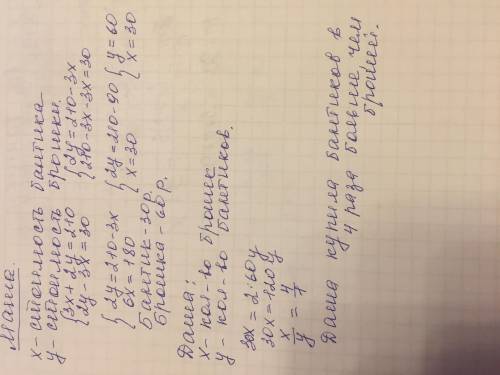 Маша.
x - стоимость бантика
y - стоимость брошки.
{ 3x + 2y = 210 { 2y = 210 - 3x
{ 2y - 3x = 30 { 210 - 3x - 3x = 30
{ 2y = 210 - 3x { 2y = 210 - 90 { y = 60
{ 6x = 180 { x = 30 { x = 30
Бантик - 30 р.
Брошка - 60 р.
Даша:
x - кол-во брошек
y - кол-во бантиков.
30x = 2·60y
30x = 120y
x/y = 4/1
Даша купила бантиков в
4 раза больше чем
брошей.